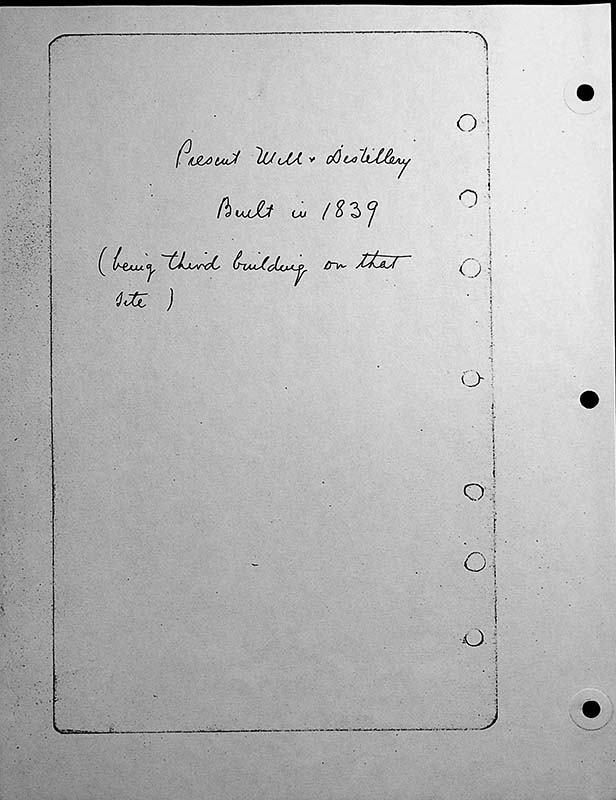 Present Mill & Distillery
Built in 1839
(being third building on that
site)